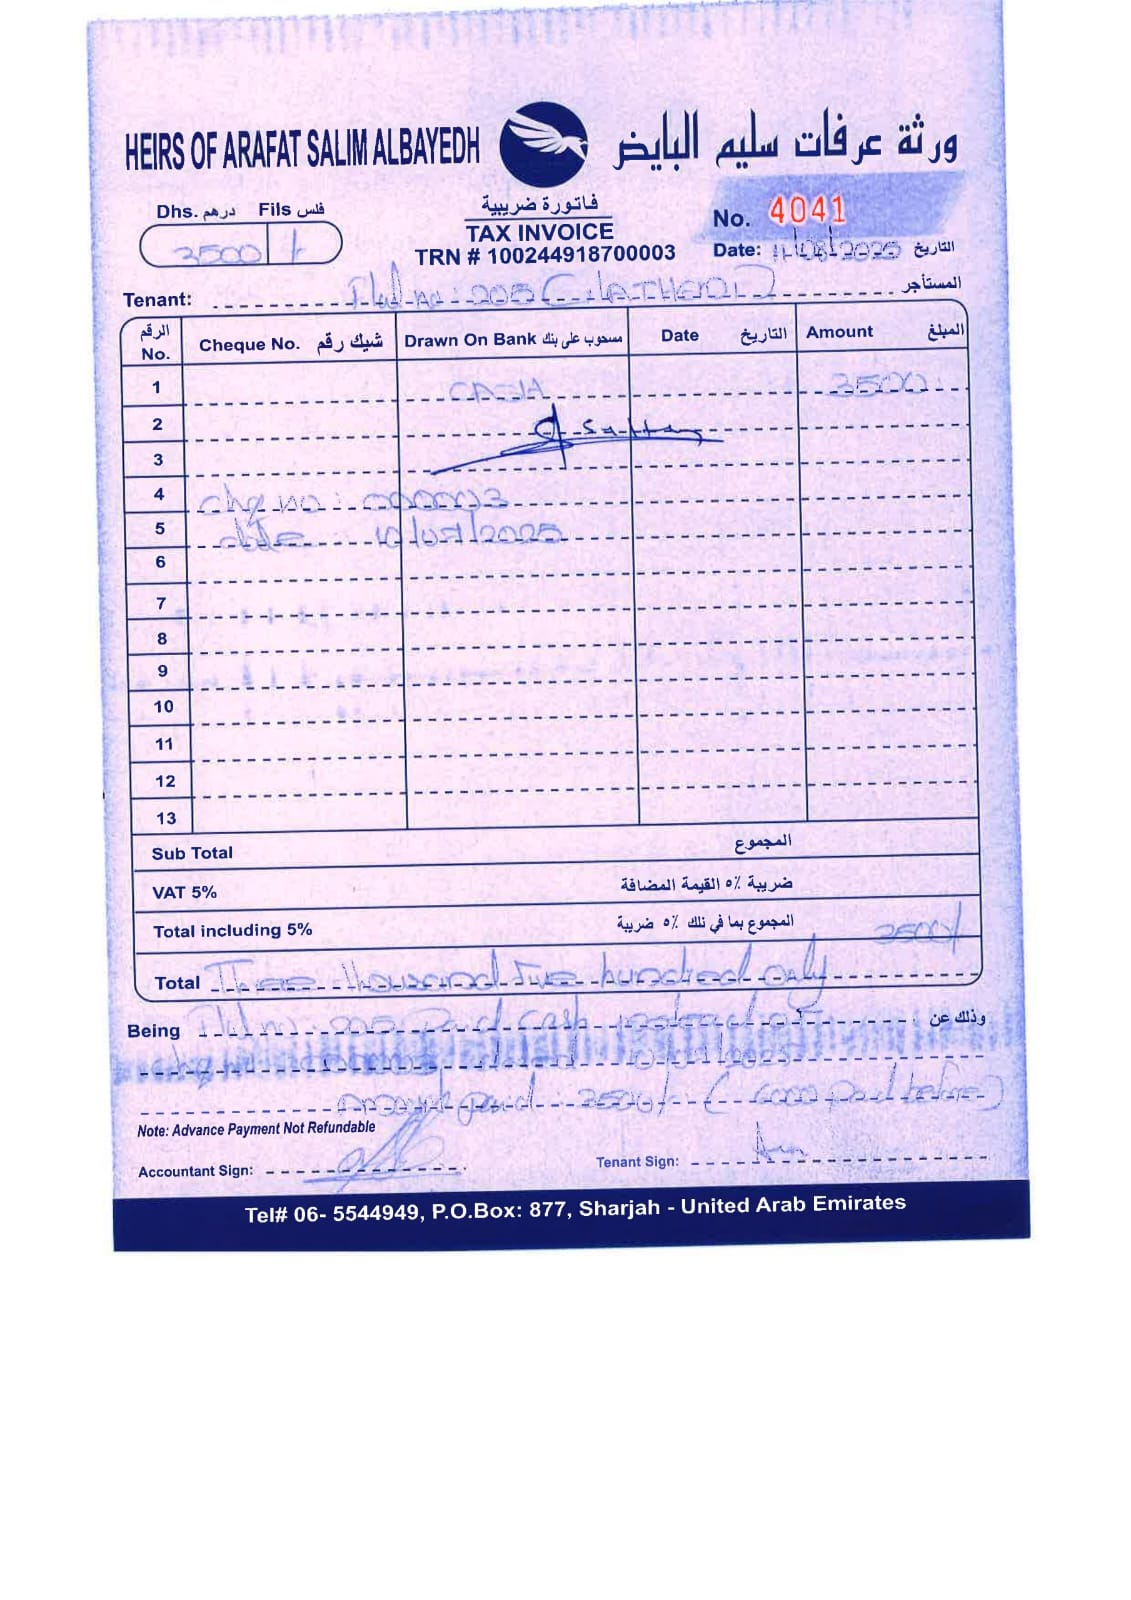 HEIRS OF ARAFAT SALIM ALBAYEDH
ورثة عرفات سليم البايض
Dhs. درهم Fils فلس
3500 /
فاتورة ضريبية
TAX INVOICE
TRN # 100244918700003
No. 4041
Date: 11/08/2025 التاريخ
Tenant: Flat no: 205 المستأجر
الرقم No. Cheque No. شيك رقم Drawn On Bank مسحوب على بنك Date التاريخ Amount المبلغ
1 CASH 3500
2
3
4 chq no: 000003
5 date 10/07/2025
6
7
8
9
10
11
12
13
Sub Total المجموع
VAT 5% ضريبة ٥٪ القيمة المضافة
Total including 5% المجموع بما في ذلك ٥٪ ضريبة 3500/
Total Three thousand Five hundred only
Being Flat no: 205 Paid cash instead of وذلك عن
chq no: 000003 10/07/2025
amount paid: 3500/- (4000 paid before)
Note: Advance Payment Not Refundable
Accountant Sign: Tenant Sign:
Tel# 06- 5544949, P.O.Box: 877, Sharjah - United Arab Emirates